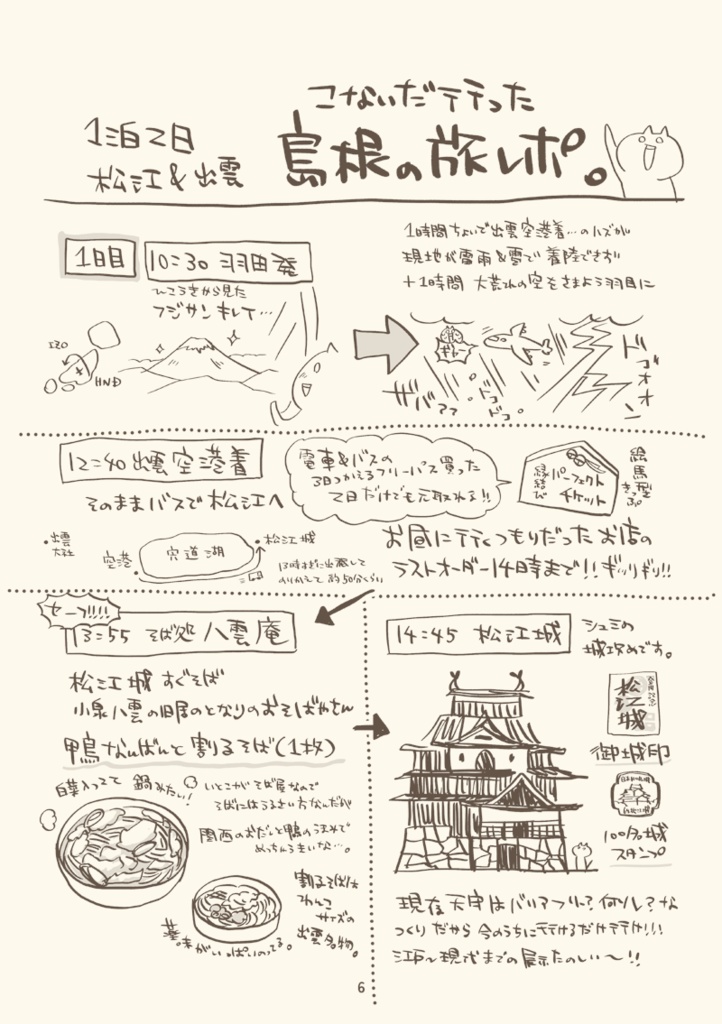 こないだ行った
1泊2日
松江&出雲
島根の旅レポ。
1日目
10:30 羽田発
ひこうきから見た
フジサンキレイ…
IZO
HND
1時間ちょいで出雲空港着…のハズが
現地が雷雨&雪で着陸できず
+1時間 大荒れの空をさまよう羽目に
ギャー
ザバァァァ
ドコドコ
ドゴォオオン
12:40 出雲空港着
そのままバスで松江へ
電車&バスの
3日つかえるフリーパス買った
2日だけでも元取れる!!
縁結び
パーフェクト
チケット
絵馬型
きっぷ
・出雲
大社
空港
宍道湖
・松江城
13時すぎに出発して
のりかえて 約50分くらい
お昼に行くつもりだったお店の
ラストオーダー14時まで!!ギッリギリ!!
セーフ!!!!
13:55 そば処 八雲庵
松江城 すぐそば
小泉八雲の旧居のとなりのおそばやさん
鴨なんばんと割るそば(1枚)
白菜入ってて 鍋みたい!
いとこがそば屋なので
そばにはうるさい方なんだが
関西のおだしと鴨のうまみで
めっちゃうまいな…。
割るそばは
わんこ
サイズの
出雲名物。
薬味がいっぱいのってる。
14:45 松江城
シュミの
城攻めです。
松江城
御城印
100名城
スタンプ
現在 天守はバリアフリー?何ソレ?な
つくりだから 今のうちに行けるだけ行け!!!
江戸〜現代までの展示たのしい〜!!
6